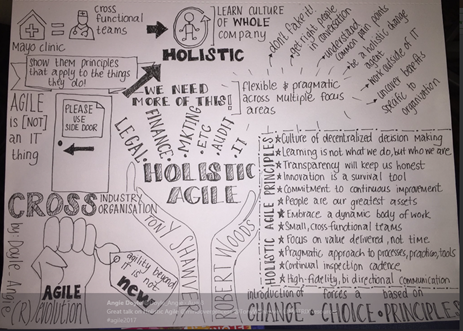 Mayo clinic
CROSS
functional
teams
LEARN CULTURE
OF WHOLE
company
HOLISTIC
don't fake it!
get right people
in conversation
understand
common pain points
be a holistic change
agent
work outside of IT
uncover benefits
specific to
organisation
show them principles
that apply to the things
they do!
WE NEED
MORE OF THIS!
flexible & pragmatic
across multiple focus
areas
AGILE
IS [NOT]
AN IT
thing
PLEASE
USE
SIDE DOOR
LEGAL • FINANCE • MKTING • ETC • AUDIT • IT
HOLISTIC
AGILE
CROSS INDUSTRY
ORGANISATION
by Doyle Angie
AGILE
(R)evolution!
agility beyond
IT is not
new
ROBERT WOODS
HOLISTIC AGILE PRINCIPLES!
★ Culture of decentralized decision making
★ Learning is not what we do, but who we are
★ Transparency will keep us honest
★ Innovation is a survival tool
★ Commitment to continuous improvement
★ People are our greatest assets
★ Embrace a dynamic body of work
★ Small, cross-functional teams
★ Focus on value delivered, not time.
★ Pragmatic approach to processes, practices, tools
★ Continual inspection cadence,
★ High-fidelity, bi directional communication
introduction of forces a based on
CHANGE • CHOICE • PRINCIPLES
#agile2017